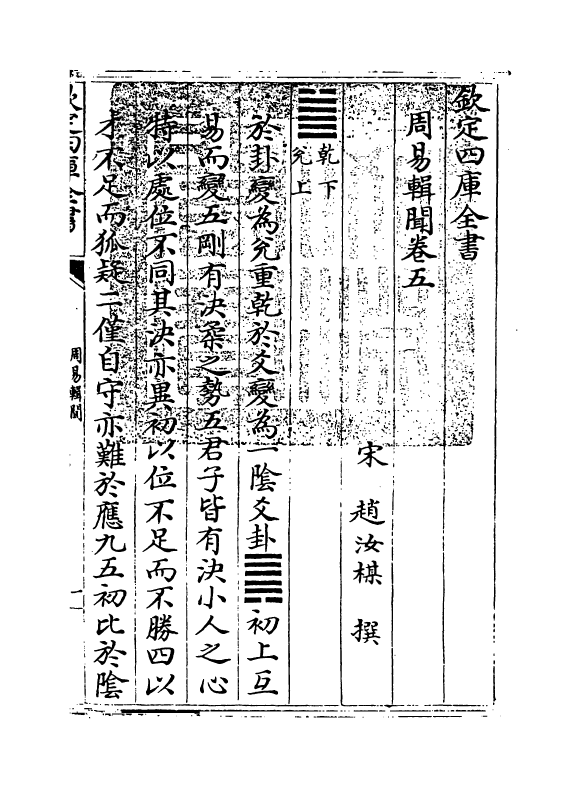 欽定四庫全書
周易輯聞卷五
宋　趙汝楳　撰
䷪乾下兌上
於卦變為兌重乾於爻變為一陰爻卦䷫初上互
易而變五剛有決柔之勢五君子皆有決小人之心
特以處位不同其決亦異初以位不足而不勝四以
才不足而狐疑二僅自守亦難於應九五初比於陰
欽定四庫全書
周易輯聞
一